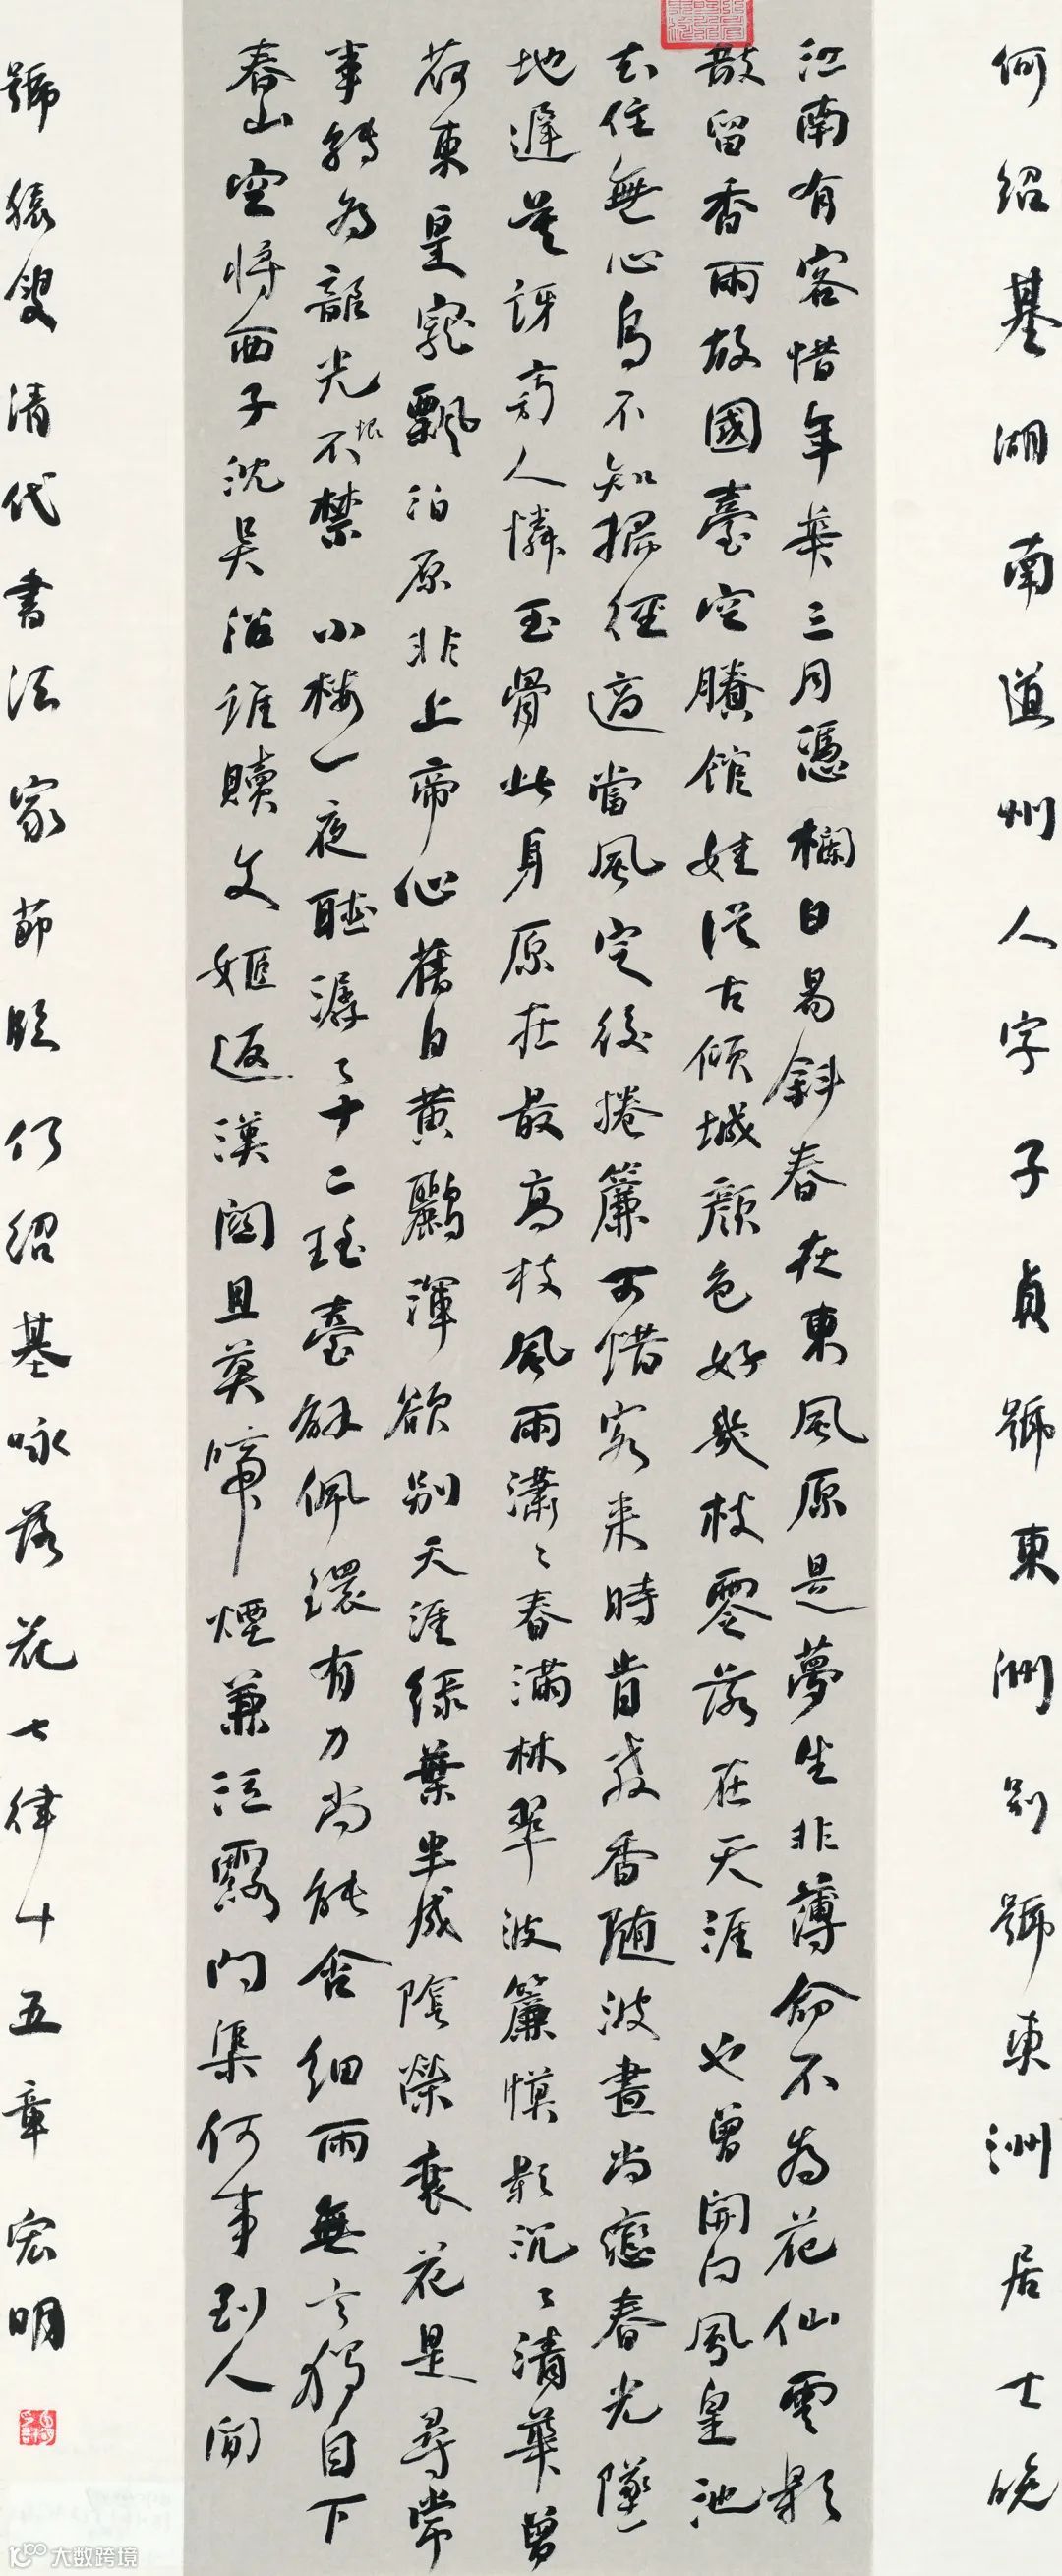 何紹基湖南道州人字子貞號東洲別號東洲居士晚
江南有客惜年華三月憑欄日易斜春在東風原是夢生非薄命不為花仙雲影
散留香雨故國臺空賸館娃從古傾城顏色好幾枝零落在天涯 也曾開向鳳皇池
去住無心鳥不知掃徑適當風定後捲簾可惜客來時肯教香隨波盡尚戀春光墜
地遲莫訝旁人憐玉骨此身原在最高枝風雨瀟瀟春滿林翠波簾幙影沉沉清華曾
荷東皇寵飄泊原非上帝心舊日黃鸝渾欲別天涯綠葉半成陰榮衰花是尋常
事轉為韶光恨不禁 小樓一夜聽潺潺十二瑤臺解佩環有力尚能含細雨無言獨自下
春山空將西子沈吳沼誰贖文姬返漢關且莫啼煙兼泣露問渠何事到人間
號猿叟清代書法家節臨何紹基咏落花七律十五章宏明
大数跨境